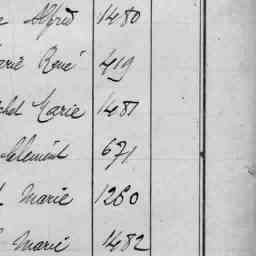 Alfred 1480
René 419
Marie 1481
Clément 671
Marie 1260
Marie 1482